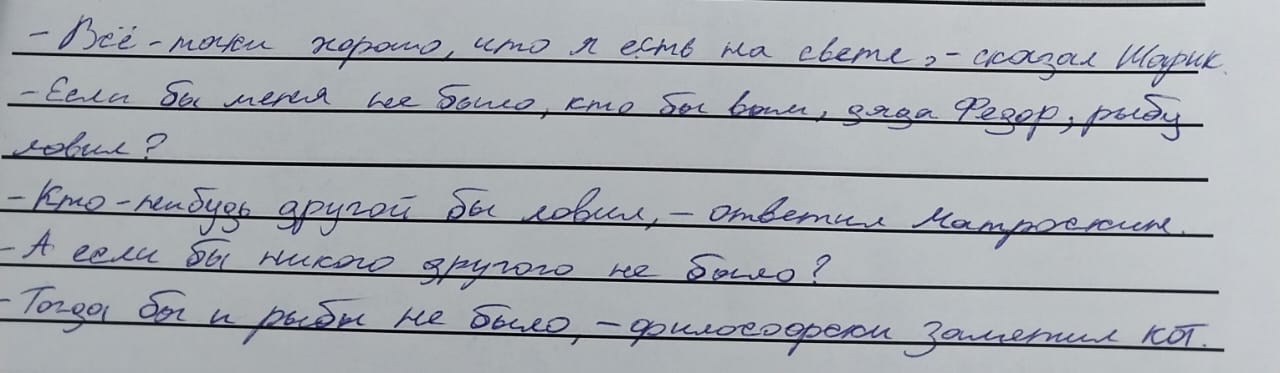 - Всё-таки хорошо, что я есть на свете, - сказал Шарик.
- Если бы меня не было, кто бы вам, дядя Федор, рыбу
ловил?
- Кто-нибудь другой бы ловил, - ответил Матроскин.
- А если бы никого другого не было?
- Тогда бы и рыбы не было, - философски заметил кот.